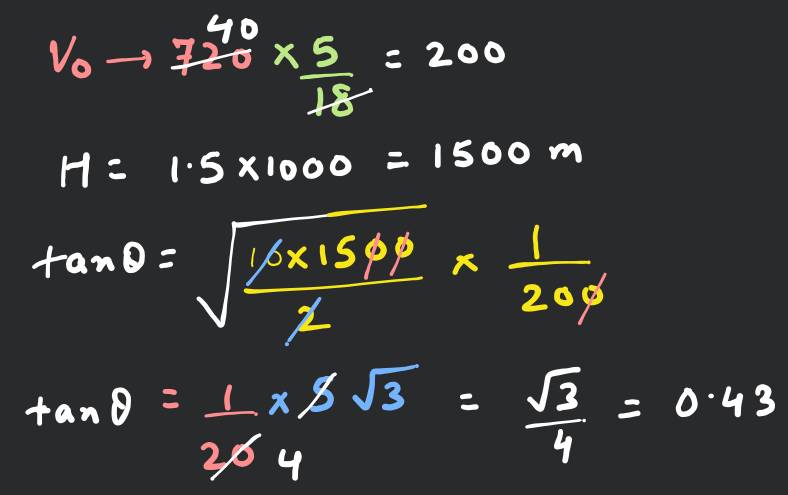 40
V₀ → 720 × 5/18 = 200
H = 1.5 × 1000 = 1500 m
tanθ = √(10 × 1500 / 2) × 1/200
tanθ = 1/20 × 5√3 = √3/4 = 0.43
4